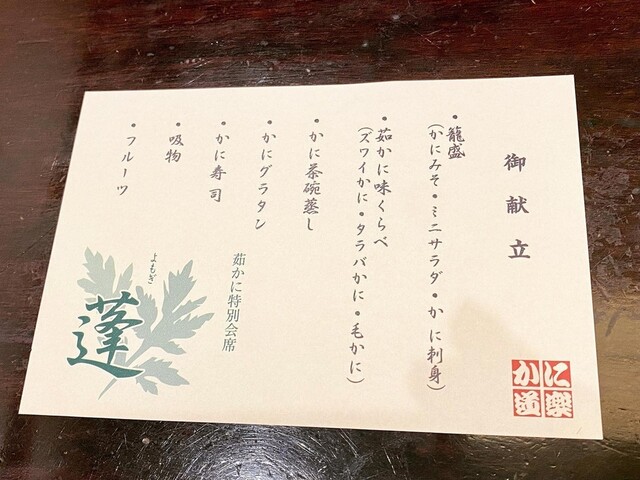 御献立
・籠盛
(かにみそ・ミニサラダ・かに刺身)
・茹かに味くらべ
(ズワイかに・タラバかに・毛かに)
・かに茶碗蒸し
・かにグラタン
・かに寿司
・吸物
・フルーツ
茹かに特別会席
よもぎ
蓬
かに道楽